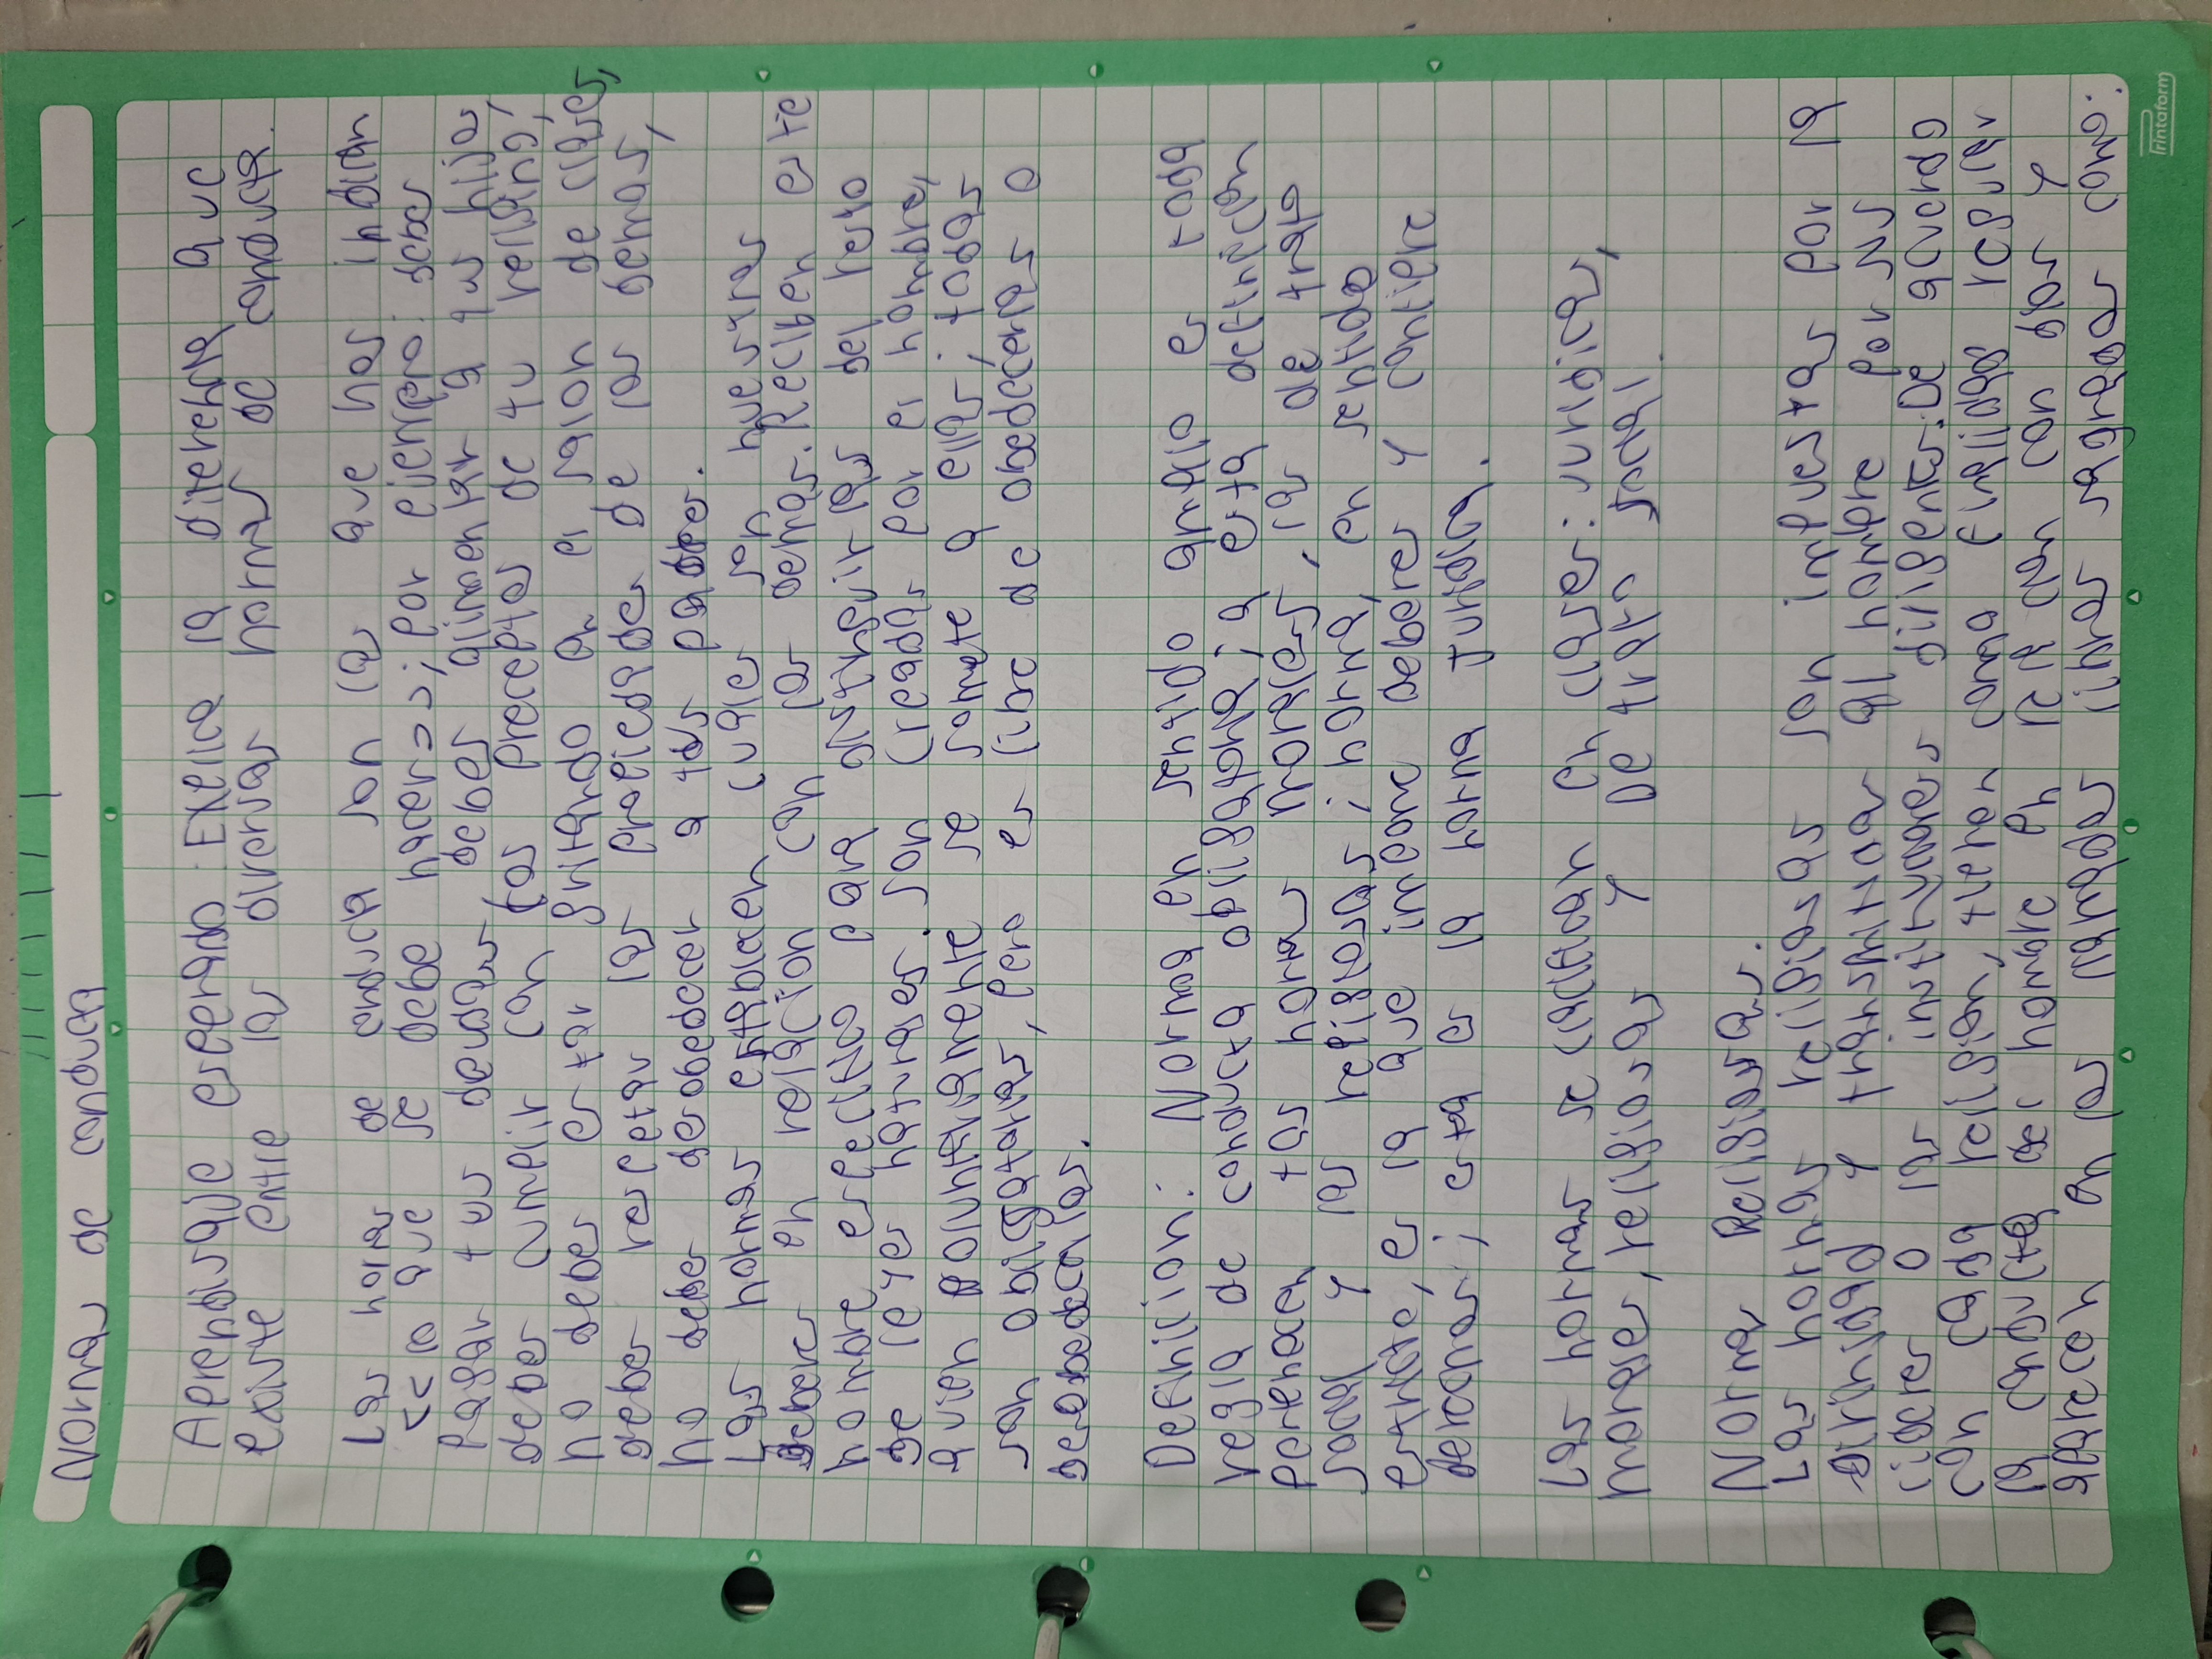 Normas de conducta
Aprendisaje esperado: Explica la diferencia que
existe entre las diversas normas de conducta.
Las normas de conducta son las que nos indican
<< lo que se debe hacer>>; por ejemplo: debes
pagar tus deudas debes alimentar a tus hijos
debes cumplir con los preceptos de tu religión,
no debes estar gritando en el salon de clases,
debes respetar las propiedades de los demas,
no debes desobedecer a tus padres.
Las normas establecen cuales son nuestros
deberes en relación con los demas. Reciben este
nombre especifico para distinguir las del resto
de leyes naturales. son creadas por el hombre,
quien voluntariamente se somete a ellas; todas
son obligatorias, pero es libre de obedecerlas o
desobedecerlas.
Definición: Norma en sentido amplio es toda
regla de conducta obligatoria; a esta definición
pertenecen las normas morales, las de trato
social y las religiosas; norma, en sentido
estricto, es la que impone deberes y confiere
derechos; esta es la norma juridica.
Las normas se clasifican en clases: juridicas,
morales, religiosas y De trato social.
Normas Religiosas.
Las normas religiosas son impuestas por la
Divinidad y transmitidas al hombre por sus
lideres o las instituciones dirigentes. De acuerdo
con cada religión, tienen como finalidad regular
la conducta del hombre en relación con dios y
aparecen en los llamados libros sagrados como:
Printaform